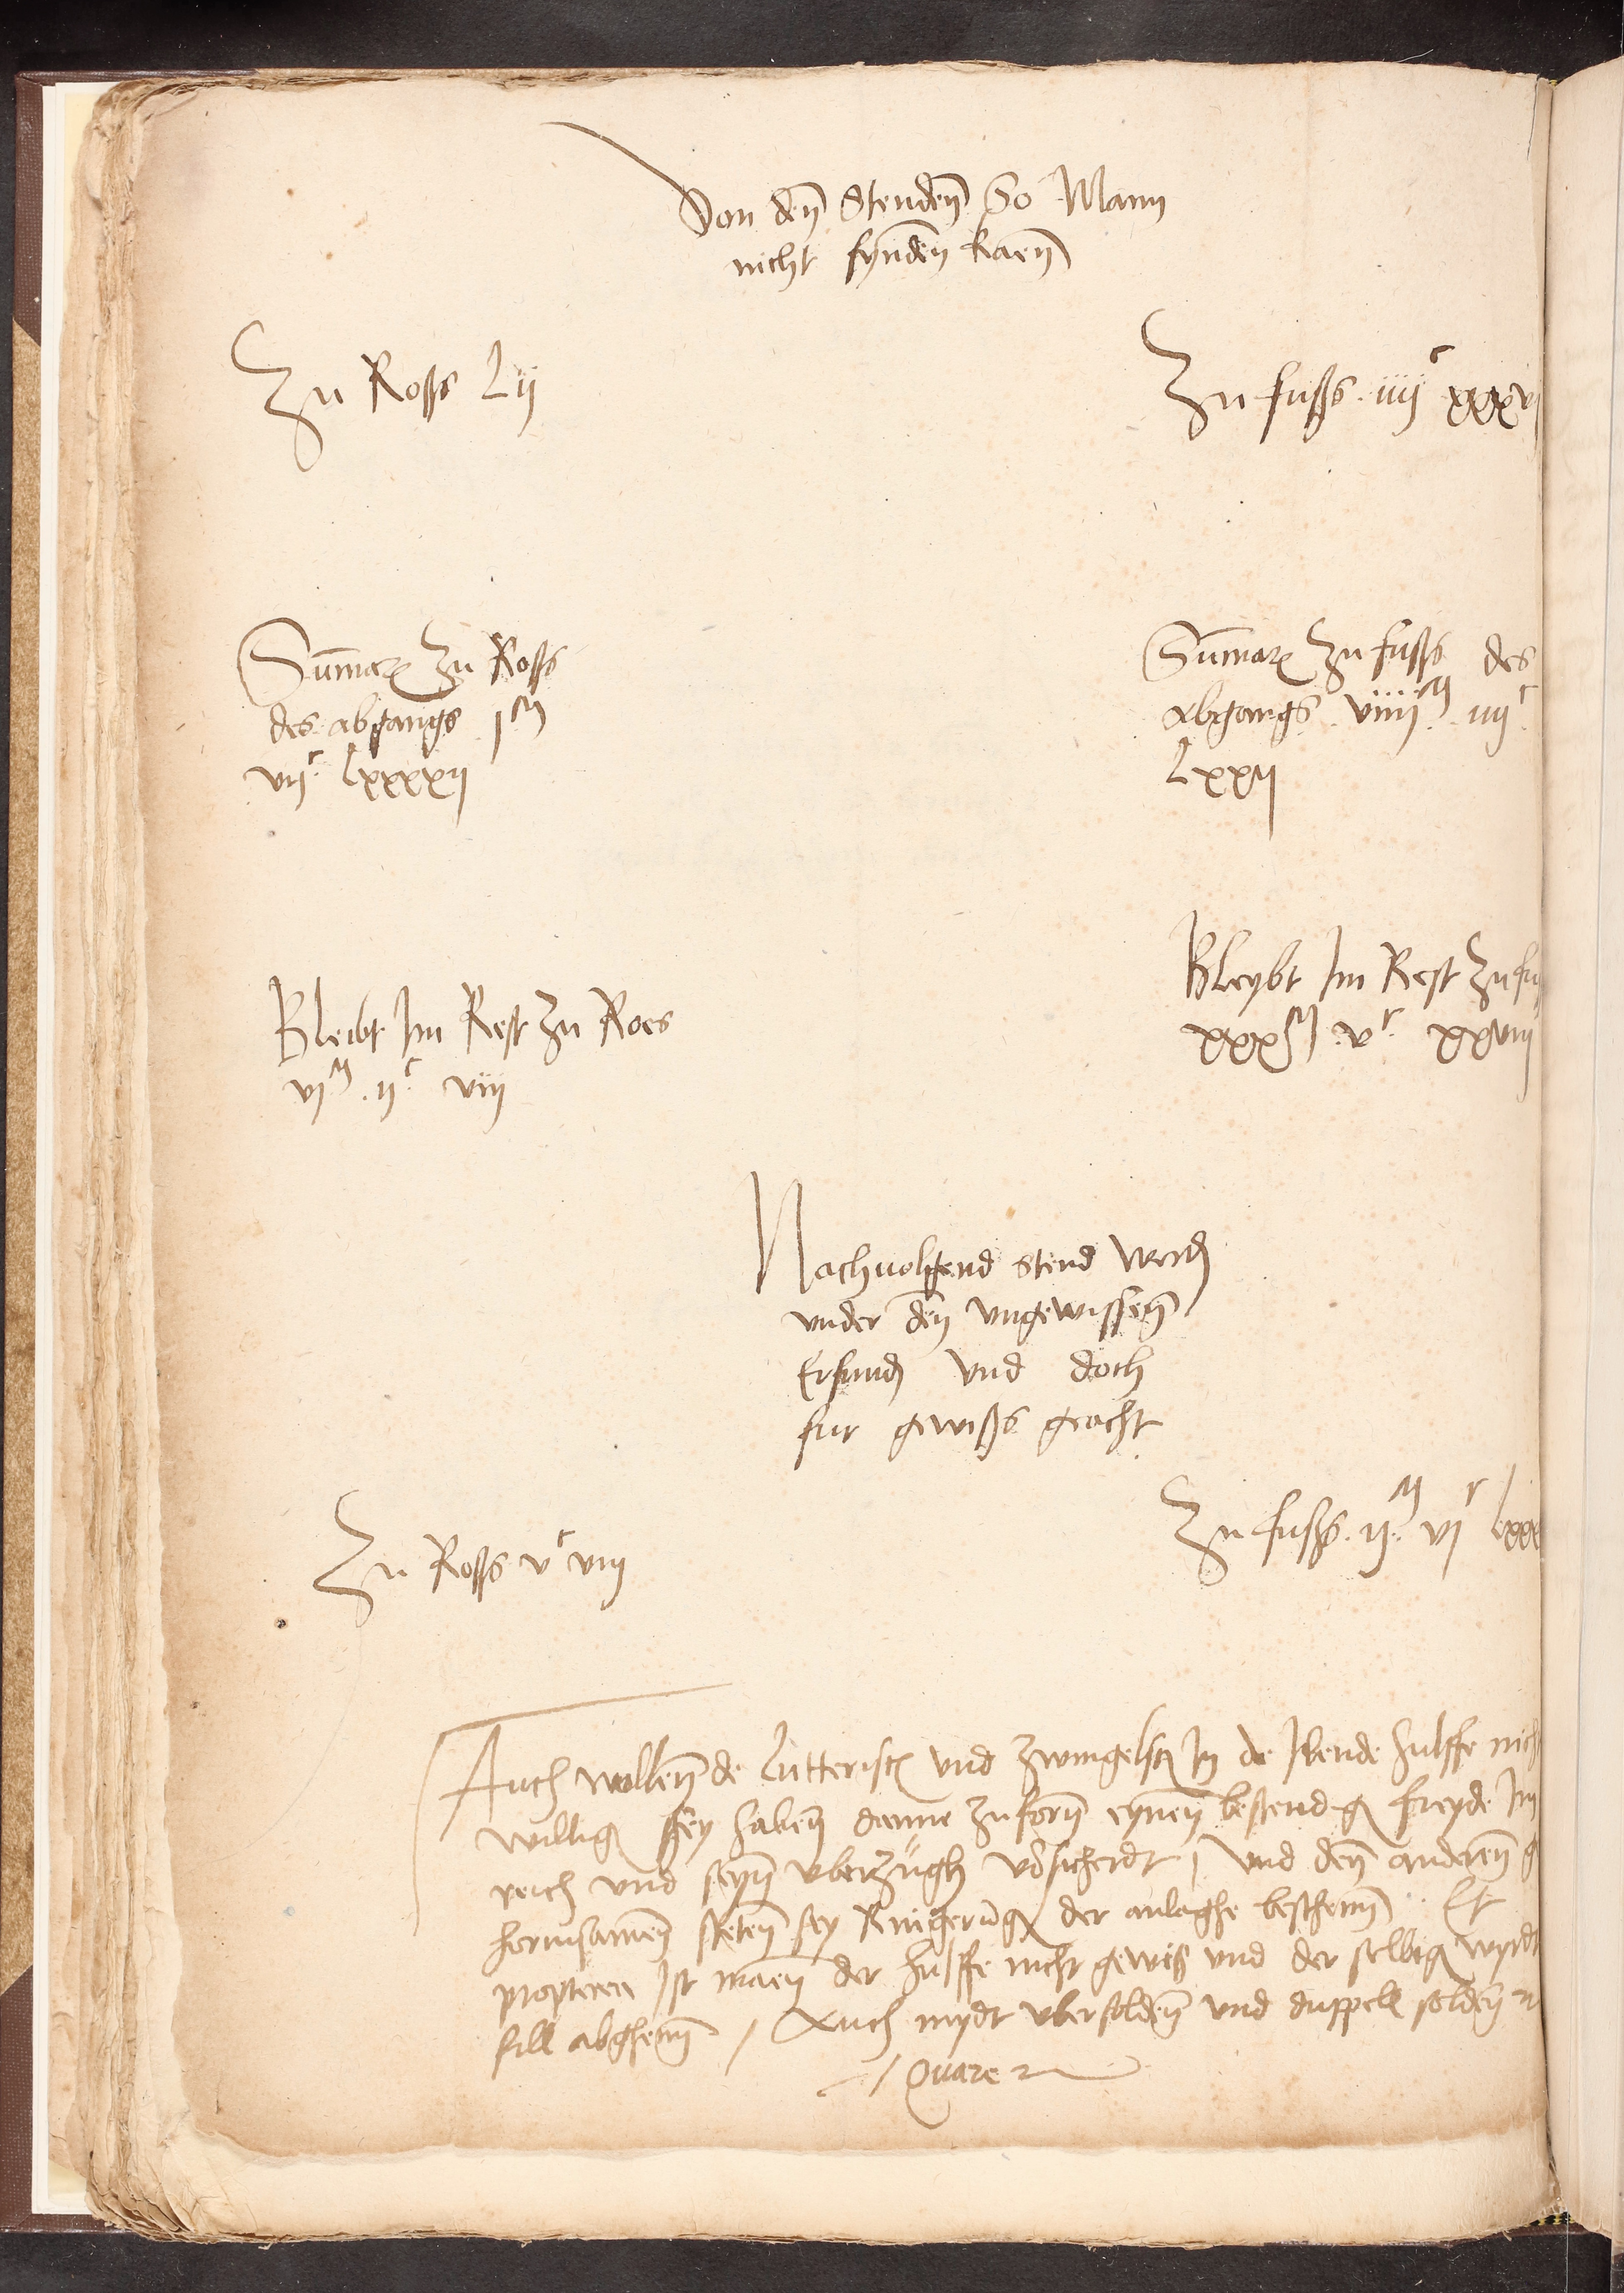 Von den Stenden So Mann
nicht fynden kaen
Zu Ross Lij
Zu fuss iiijc xxxvj
Summarum Zu Ross
des abgangs jM
vijc Lxxxxij
Summarum Zu fuss des
abgangs viiijM iiijc
Lxxij
Bleibt Im Rest Zu Roes
vjM ijc viij
Bleybt Im Rest Zu fus
xxxM vc xxviij
Nachuolgend stend werden
vnder den vngewissen
Erfunden vnd doch
fur gewiss geacht
Zu Ross vc viij
Zu fuss ijM vjc Lxxx
Auch wollen de Lutterisch vnd Zwingelsch In de Ilende hulffe nich
willig sey haben danne zuforn eynen bestendig freyde Im
reich vnd seyn vberzugh vorsicherdt / vnd den anderen g
horinsamen steten sey Ringerung der anlaghe beschenn Et
propterea Ist maen der hulffe nicht gewis vnd der selbig wyrdt
fill abghenn / Auch mydt vbersolden vnd duppell solden
/ Quare